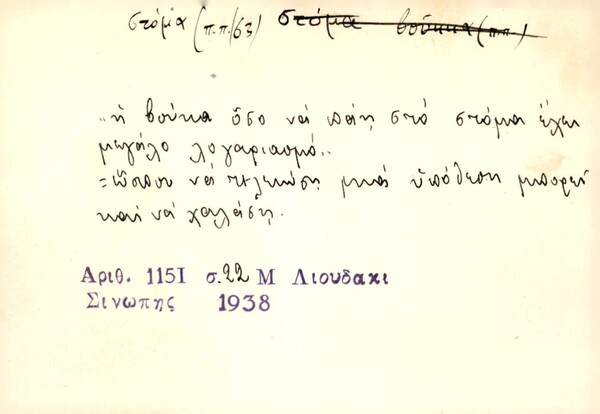 στόμα (π.π/63) στόμα βούκκα (π.π.)
„ἡ βούκα ὅσο νά πάῃ στό στόμα ἔχει
μεγάλο λογαριασμό„
=ὥσπου νά τελειώσῃ μιά ὑπόθεση μπορεῖ
καί νά χαλάσῃ.
Αριθ. 1151 σ.22 Μ Λιουδακι
Σινωπης 1938